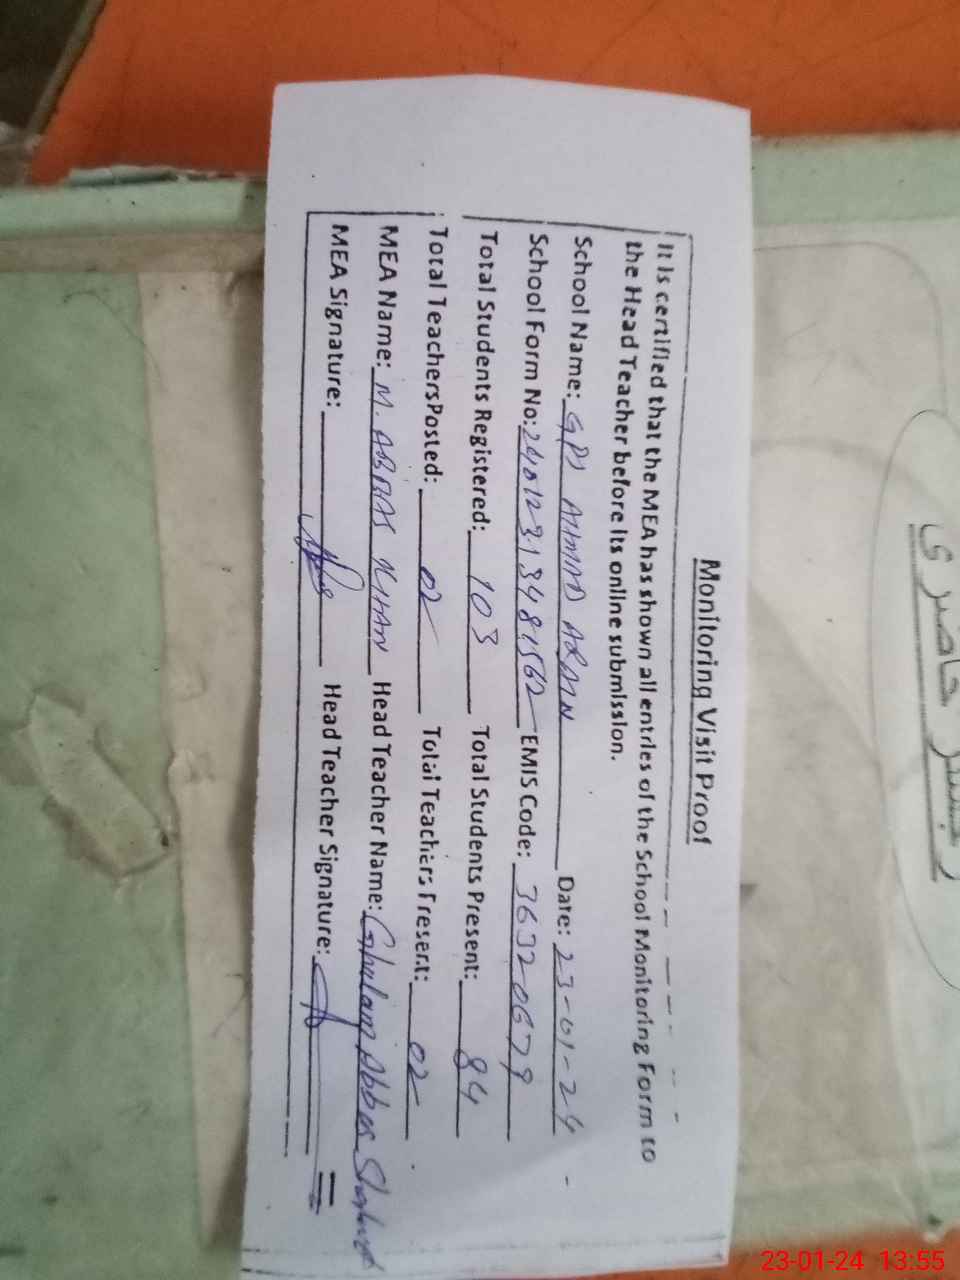 Monitoring Visit Proof
It is certified that the MEA has shown all entries of the School Monitoring Form to
the Head Teacher before its online submission.
School Name: GPS AHMAD ARAIN Date: 23-01-24
School Form No: 24012313481562 EMIS Code: 36320679
Total Students Registered: 103 Total Students Present: 84
Total Teachers Posted: 02 Total Teachers Present: 02
MEA Name: M. ABBAS KHAN Head Teacher Name: Ghulam Abbas
MEA Signature: Head Teacher Signature:
رجسٹر حاضری
23-01-24 13:55